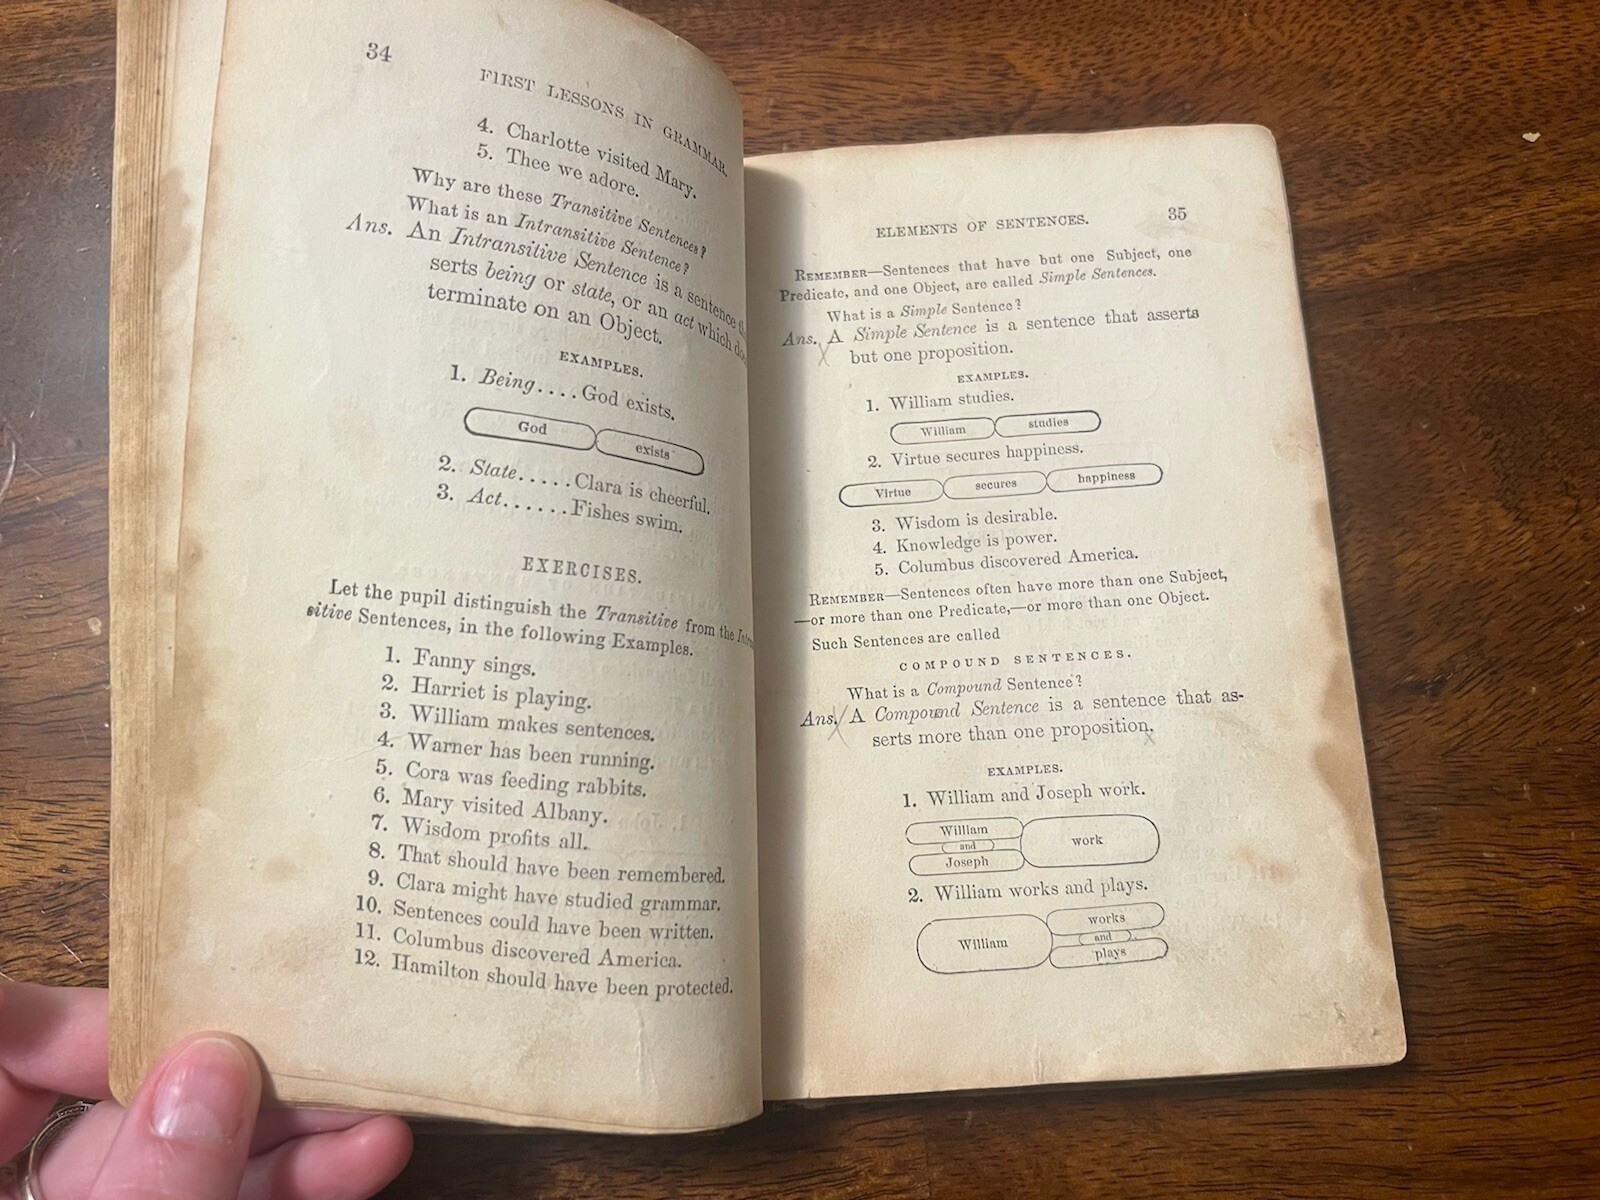 34
FIRST LESSONS IN GRAMMAR.
4. Charlotte visited Mary.
5. Thee we adore.
Why are these Transitive Sentences?
What is an Intransitive Sentence?
Ans. An Intransitive Sentence is a sentence
serts being or state, or an act which
terminate on an Object.
EXAMPLES.
1. Being....God exists.
God exists
2. State.....Clara is cheerful.
3. Act......Fishes swim.
EXERCISES.
Let the pupil distinguish the Transitive from the
sitive Sentences, in the following Examples.
1. Fanny sings.
2. Harriet is playing.
3. William makes sentences.
4. Warner has been running.
5. Cora was feeding rabbits.
6. Mary visited Albany.
7. Wisdom profits all.
8. That should have been remembered.
9. Clara might have studied grammar.
10. Sentences could have been written.
11. Columbus discovered America.
12. Hamilton should have been protected.
ELEMENTS OF SENTENCES. 35
REMEMBER—Sentences that have but one Subject, one
Predicate, and one Object, are called Simple Sentences.
What is a Simple Sentence?
Ans. A Simple Sentence is a sentence that asserts
but one proposition.
EXAMPLES.
1. William studies.
William studies
2. Virtue secures happiness.
Virtue secures happiness
3. Wisdom is desirable.
4. Knowledge is power.
5. Columbus discovered America.
REMEMBER—Sentences often have more than one Subject,
—or more than one Predicate,—or more than one Object.
Such Sentences are called
COMPOUND SENTENCES.
What is a Compound Sentence?
Ans. A Compound Sentence is a sentence that as-
serts more than one proposition.
EXAMPLES.
1. William and Joseph work.
William
and
Joseph
work
2. William works and plays.
William
works
and
plays